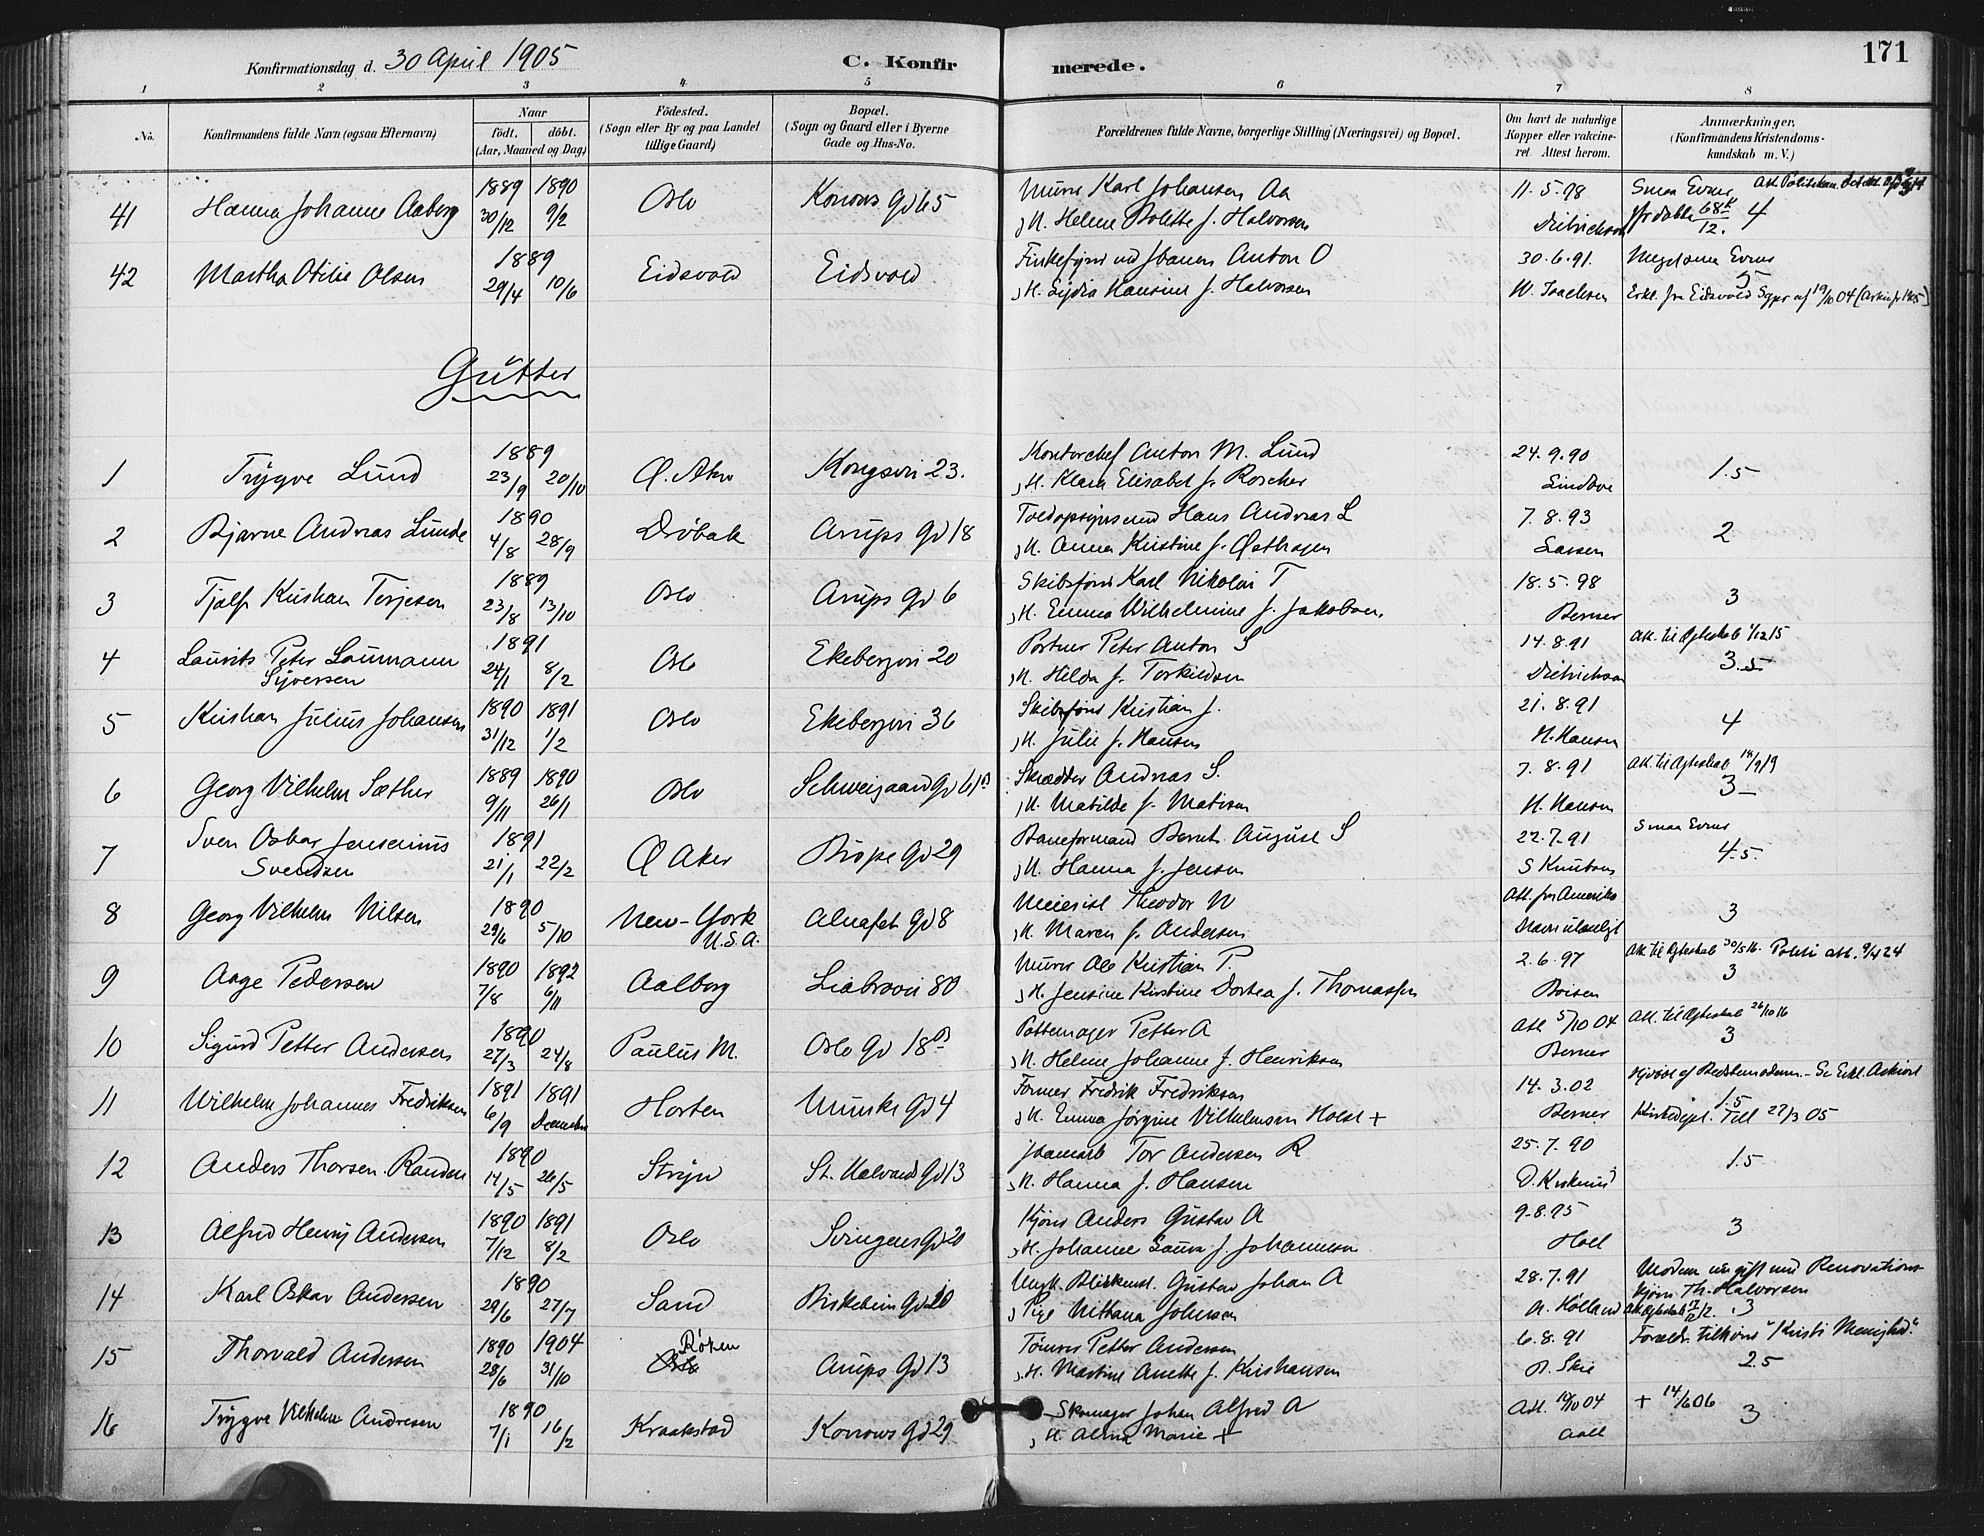 Konfirmationsdag d. 30 April 1905
C. Konfirmerede.
171
1 2 3 4 5 6 7 8
No.
Konfirmandens fulde Navn (ogsaa Efternavn)
Naar
født. døbt.
(Aar, Maaned og Dag)
Födested.
(Sogn eller By og paa Landet
tillige Gaard)
Bopæl.
(Sogn og Gaard eller i Byerne
Gade og Hus-No.
Forældrenes fulde Navne, borgerlige Stilling (Næringsvei) og Bopæl.
Om havt de naturlige
Kopper eller vakcine-
ret Attest herom.
Anmærkninger,
(Konfirmandens Kristendoms-
kundskab m. V.)
41 Hanna Johanne Aaberg 1889 30/12 1890 9/2 Oslo Konows Gd 65 Murer Karl Johansen Aa 11.5.98 Smaa Evner
, H. Helene Bolette f. Halvorsen Dietrichson 4
42 Martha Otilie Olsen 1889 29/4 10/6 Eidsvold Eidsvold Anton O 30.6.91. Meget smaa Evner
, H. Lydia Hansine f. Halvorsen W. Isachsen 5 Erkl. fra Eidsvold Sgpr af 19/10 04
Gutter
1 Trygve Lund 1889 23/9 20/10 Ø. Aker Kongsvei 23. Kontorchef Anton M. Lund 24.9.90 1.5
, H. Klara Elisabet f. Roscher Lindboe
2 Bjarne Andreas Lunde 1890 4/8 28/9 Drøbak Arups Gd 18 Hans Andreas L 7.8.93 2
, H. Anna Kristine f. Østhagen Larsen
3 Tjalf Kristian Terjesen 1889 23/8 13/10 Oslo Arups Gd 6 Skibsfører Karl Nikolai T 18.5.98 3
, H. Emma Wilhelmine f. Jakobsen Berner
4 Laurits Peter Laumann 1891 24/1 8/2 Oslo Ekebergvei 20 Portner Peter Anton S 14.8.91 Att. til Ægteskab 1/12 15
Syversen , H. Hilda f. Torkildsen Dietrichson 3.5
5 Kristian Julius Johansen 1890 31/12 1891 1/2 Oslo Ekebergvei 36 Skibsfører Kristian J. 21.8.91 4
, H. Julie f. Hansen H. Hansen
6 Georg Vilhelm Sæther 1889 9/11 1890 26/1 Oslo Schweigaard Gd 61 B Skrædder Andreas S. 7.8.91 Att. til Ægteskab 18/9 19
, H. Matilde f. Matisen H. Hansen 3
7 Sven Oskar Jensenius 1891 21/1 22/2 Ø Aker Bispe Gd 29 Baneformand Bernt August S 22.7.91 Smaa Evner
Svendsen , H. Hanna f. Jensen S Knutsen 4.5.
8 Georg Vilhelm Nilsen 1890 29/6 5/10 New-York Alnafet Gd 8 Theodor N Att. fra Amerika 3
U.S.A. , H. Maren f. Andersen Navn ulæseligt
9 Aage Pedersen 1890 7/8 1892 6/11 Aalborg Liabrovei 80 Murer Ole Kristian P. 2.6.97 Att til Ægteskab 30/5 16. Politi att. 9/4 24
, H. Jensine Kirstine Dortea f. Thomassen Boisen 3
10 Sigurd Petter Andersen 1890 27/3 24/8 Paulus M. Oslo Gd 18 B Pottemager Petter A Att 5/10 04 Att. til Ægteskab 26/10 16
, H. Helene Johanne f. Henriksen Berner 3
11 Wilhelm Johannes Fredriksen 1891 6/9 1891 December Horten Munke Gd 4 Former Fredrik Fredriksen 14.3.02
, H. Emma Jørgine Vilhelmsen Holst + Berner 1.5 Kirkedept. Till 27/3 05
12 Anders Thorsen Randen 1890 14/5 26/5 Stryn St. Halvards Gd 13 Tor Andersen R 25.7.90 1.5
, H. Hanna f. Hansen
13 Alfred Henry Andersen 1890 7/12 1891 8/2 Oslo Svingens Gd 20 Kjører Anders Gustav A 9.8.95 3
, H. Johanne Laura f. Johannesen Holl
14 Karl Oskar Andersen 1890 29/6 27/7 Sand Birkebein Gd 20 Gustav Johan A 28.7.91 Modern nu gift med Renovations-
, Pige Nathana Johansen N. Hølland kjører Th. Halvorsen 3
15 Thorvald Andersen 1890 28/6 1904 31/10 Røken Arups Gd 13 Tømrer Petter Andersen 6.8.91 Forældr. tilhører "Kristi Menighed".
, H. Martine Anette f. Kristiansen A. Skie 2.5
16 Trygve Vilhelm Andresen 1890 7/1 16/2 Kraakstad Konows Gd 29 Skomager Johan Alfred A Att. 04 + 14/6 06
, H. Alma Marie + Aall 3